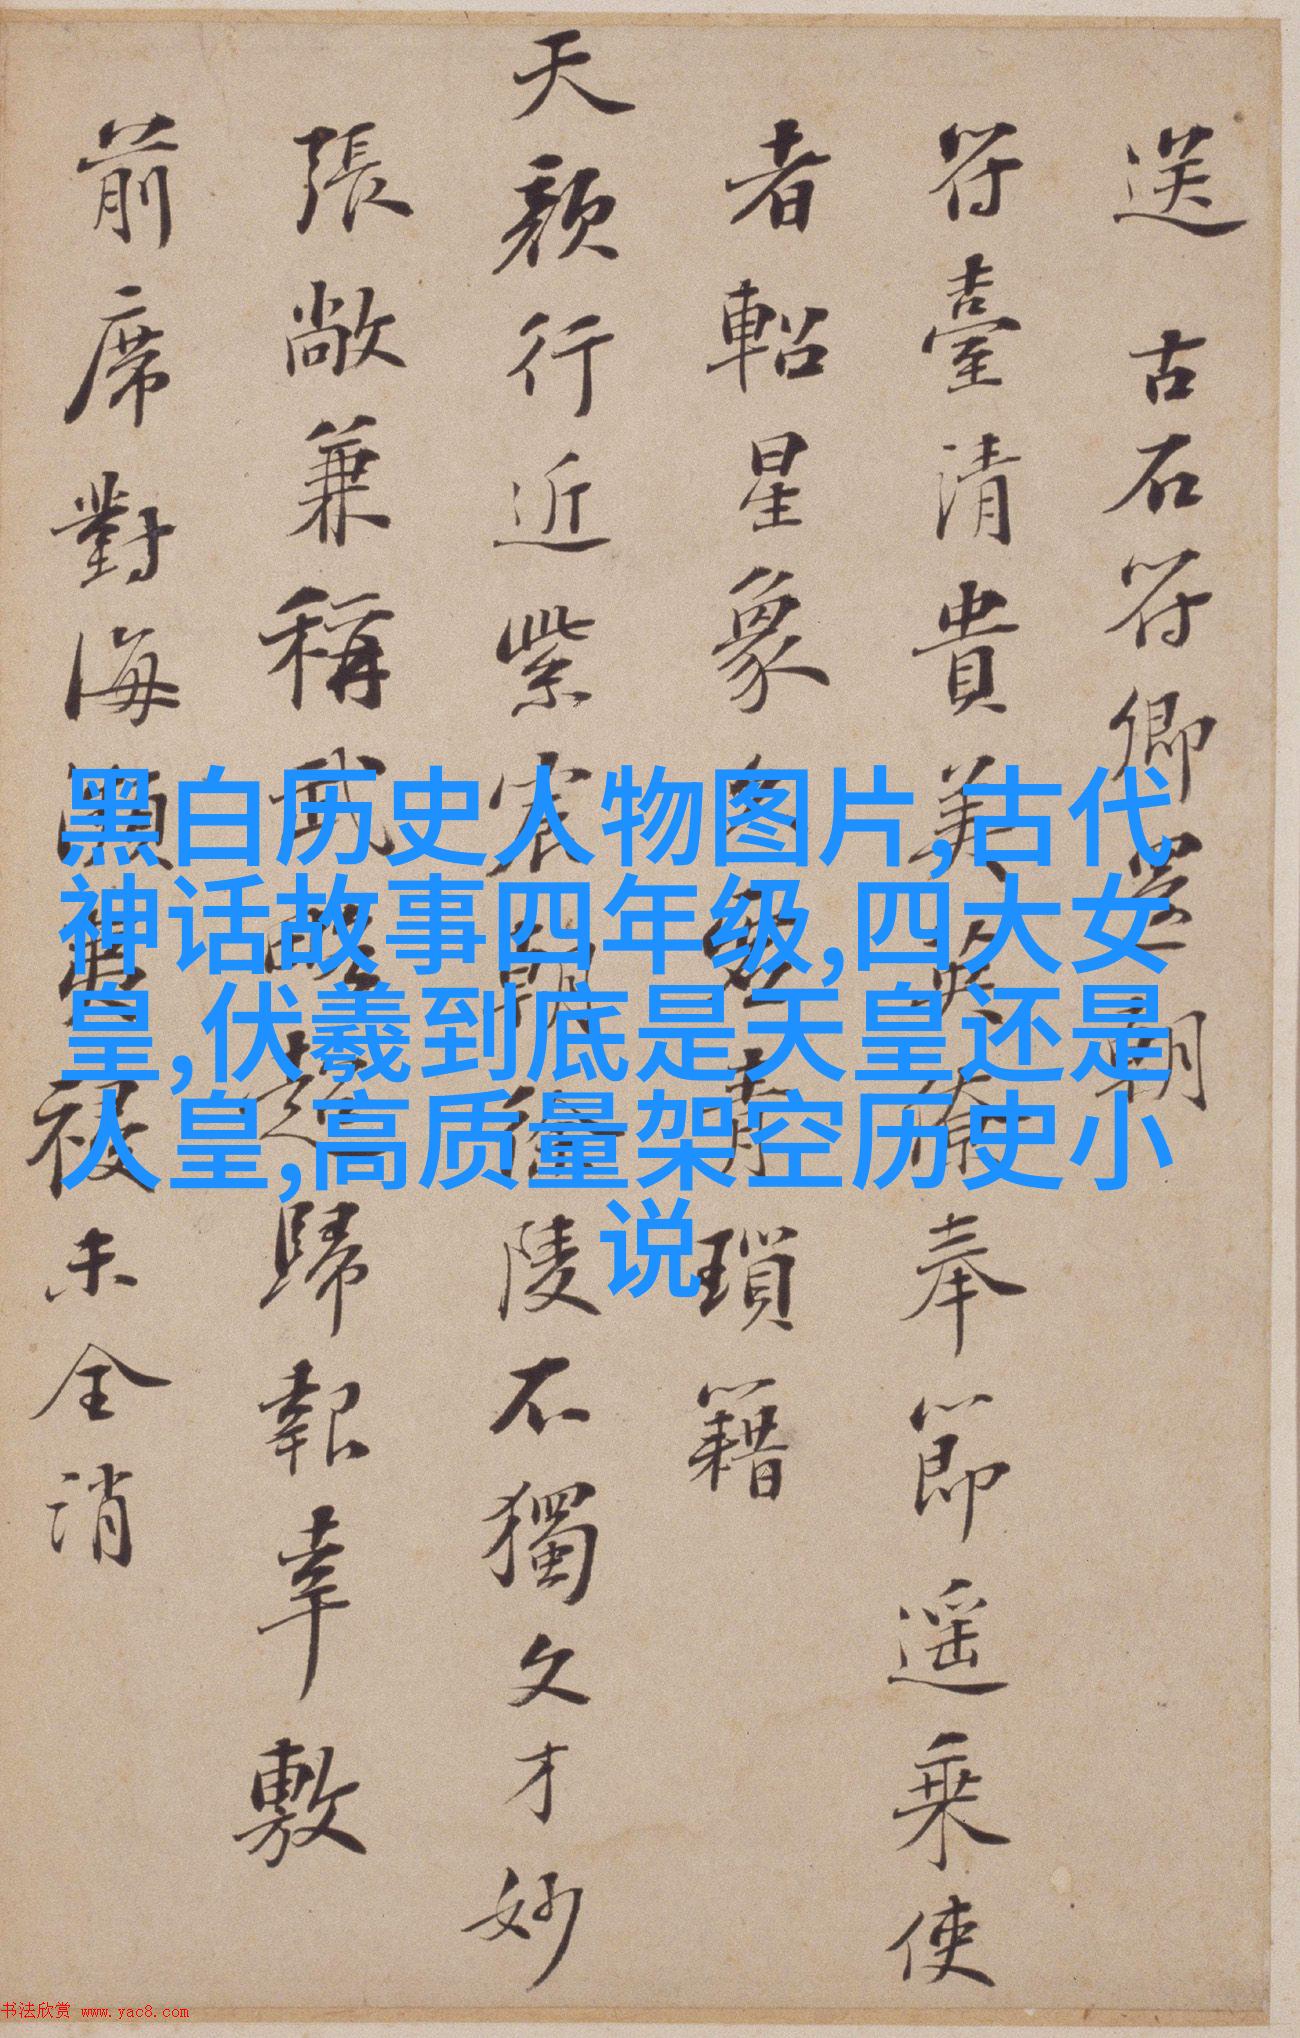 送 古石符卿朝
符臺清貴美英僚奉節遥乘使
者軺星象青瑣籍
天顏行近紫宸朝陵不獨文才妙
張敞兼稱武略超歸報幸敷
前席對海瀕祲未全消
黑白历史人物图片,古代
神话故事四年级,四大女
皇,伏羲到底是天皇还是
人皇,高质量架空历史小
说
书法欣赏 www.yac8.com